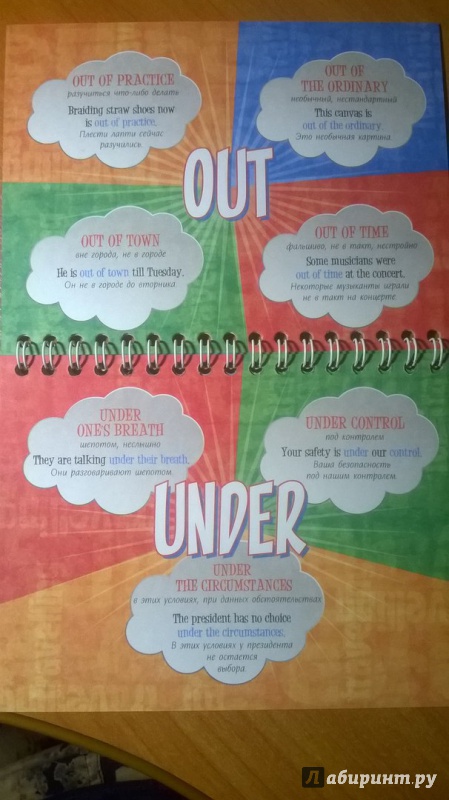 OUT OF PRACTICE
разучиться что-либо делать
Braiding straw shoes now
is out of practice.
Плести лапти сейчас
разучились.
OUT OF
THE ORDINARY
необычный, нестандартный
This canvas is
out of the ordinary.
Это необычная картина.
OUT
OUT OF TOWN
вне города, не в городе
He is out of town till Tuesday.
Он не в городе до вторника.
OUT OF TIME
фальшиво, не в такт, нестройно
Some musicians were
out of time at the concert.
Некоторые музыканты играли
не в такт на концерте.
UNDER
ONE'S BREATH
шепотом, неслышно
They are talking under their breath.
Они разговаривают шепотом.
UNDER CONTROL
под контролем
Your safety is under our control.
Ваша безопасность
под нашим контролем.
UNDER
UNDER
THE CIRCUMSTANCES
в этих условиях, при данных обстоятельствах
The president has no choice
under the circumstances.
В этих условиях у президента
не остается
выбора.
Лабиринт.ру